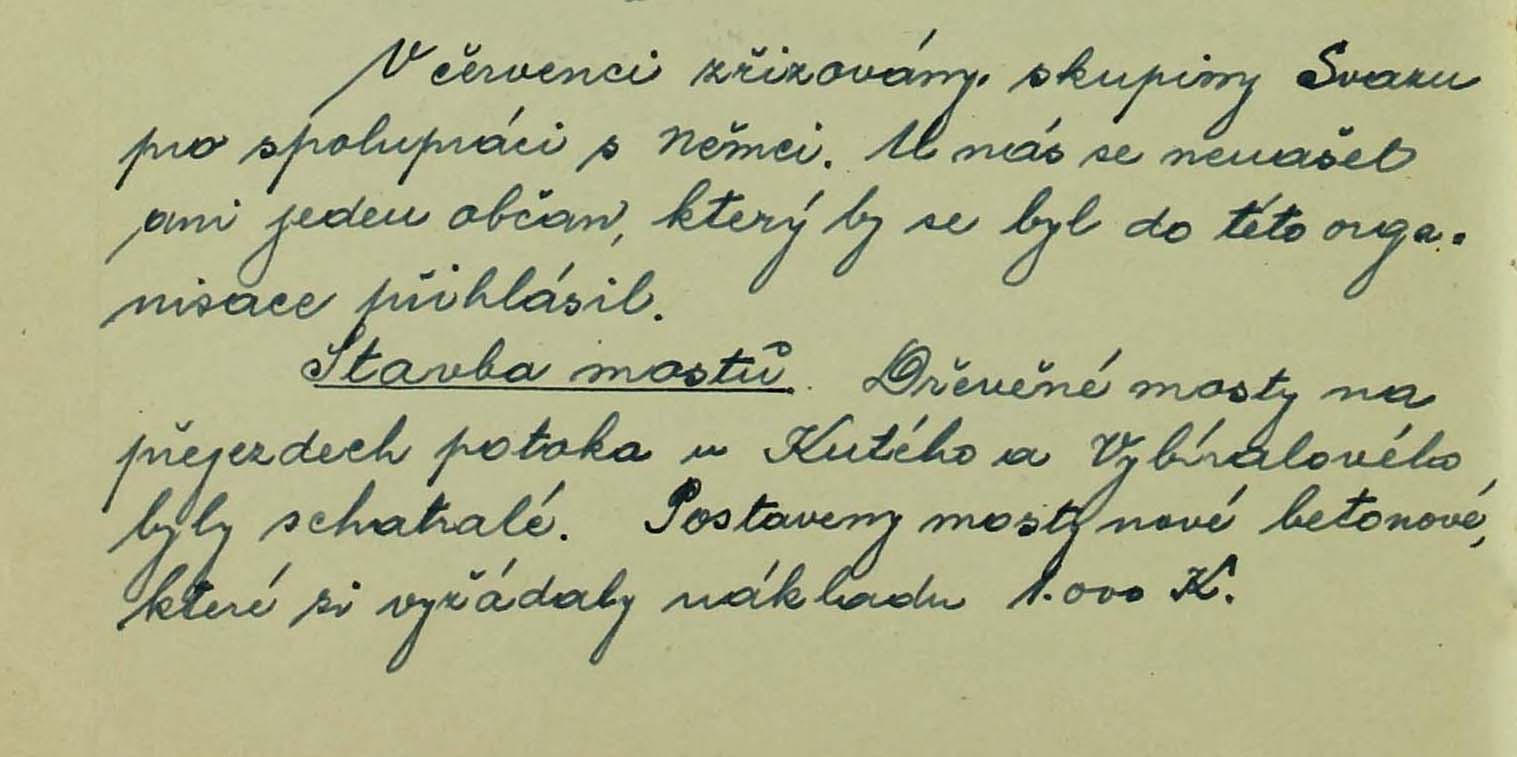 V červenci zřizovány skupiny Svazu
pro spolupráci s Němci. U nás se nenašel
ani jeden občan, který by se byl do této orga-
nisace přihlásil.
Stavba mostů. Dřevěné mosty na
přejezdech potoka u Kutého a Vybíralového
byly schatralé. Postaveny mosty nové betonové,
které si vyžádaly nákladu 1.000 K.